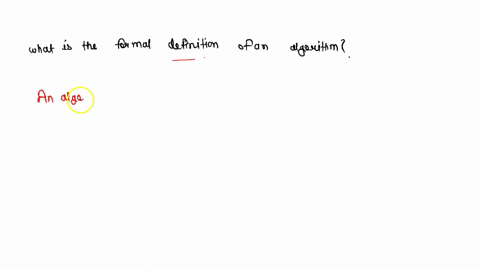 what is the formal definition of an algorithm?
An algo